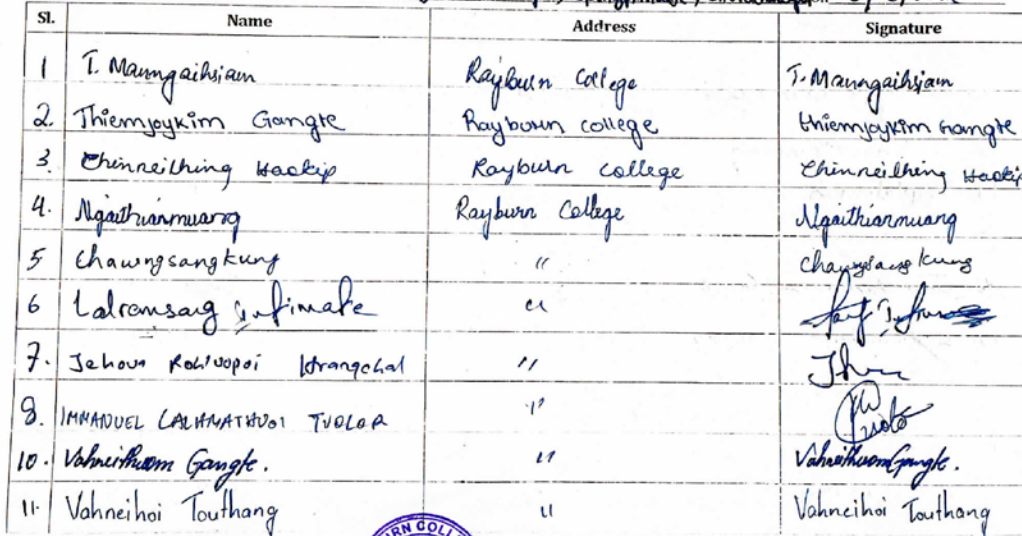 Sl. Name Address Signature
1 T. Manngaihsiam Rayburn College T. Manngaihsiam
2. Thiemjoykim Gangte Rayburn college Thiemjoykim Gangte
3. Chinneilhing Haokip Rayburn college Chinneilhing Haokip
4. Ngaithianmuang Rayburn College Ngaithianmuang
5 Chawngsangkung " Chawngsangkung
6 Lalramsang "
7. Jehova "
8. IMMANUEL "
10. Vahneithuom Gangte. " Vahneithuom Gangte.
11. Vahneihoi Touthang " Vahneihoi Touthang